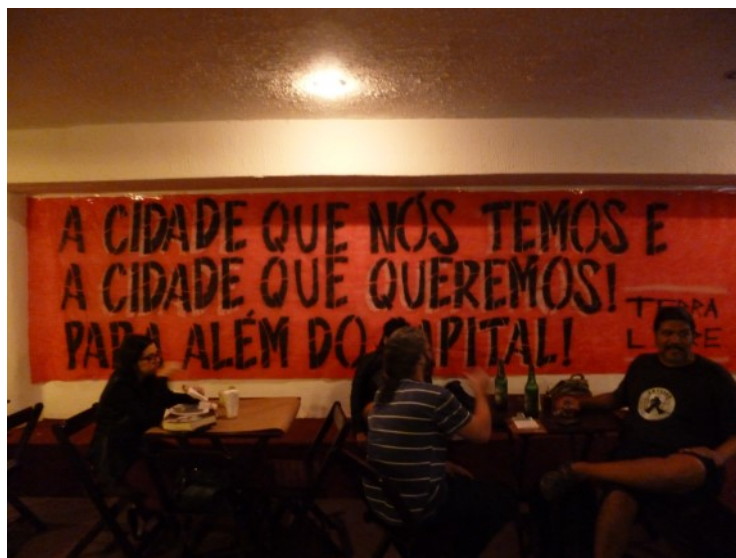 A CIDADE QUE NÓS TEMOS E
A CIDADE QUE QUEREMOS!
PARA ALÉM DO CAPITAL!
TERRA
LIVRE